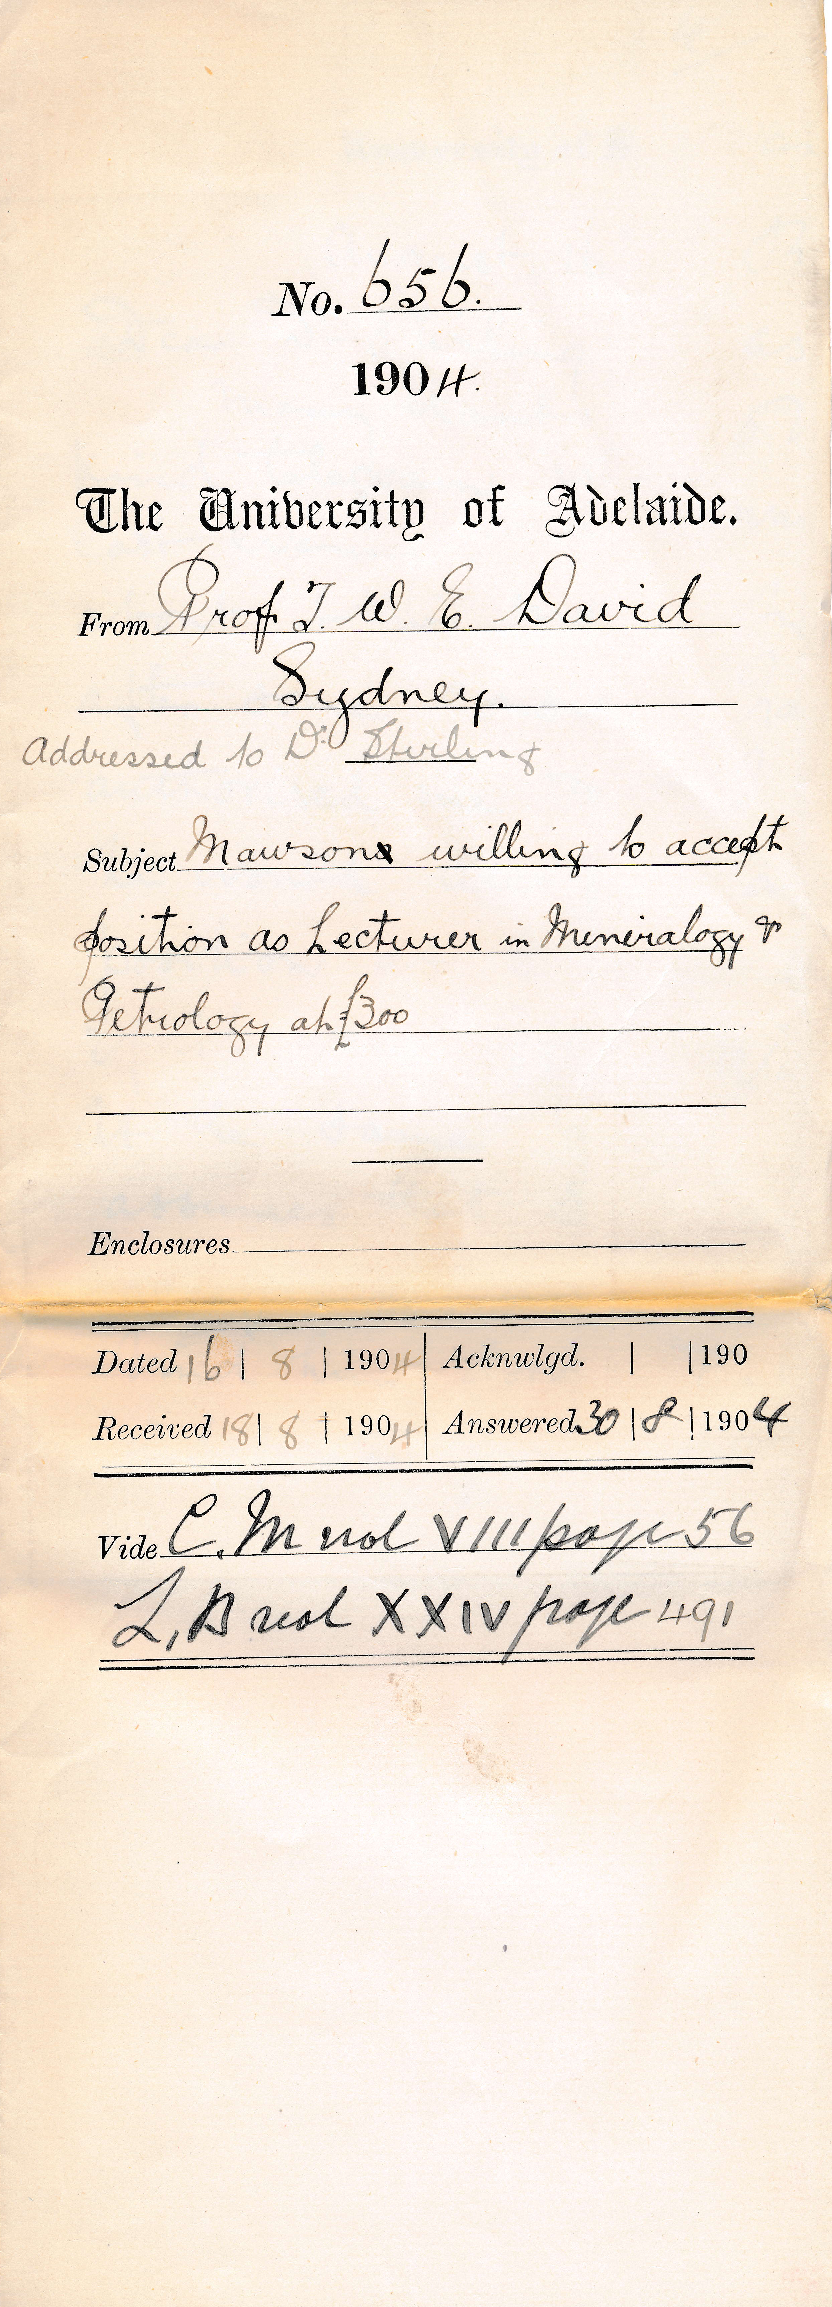 No. 656.
1904.
The University of Adelaide.
From Prof T. W. E. David
Sydney.
Addressed to Dr Stirling
Subject Mawson willing to accept
position as Lecturer in Mineralogy &
Petrology at £300
Enclosures
Dated 16 | 8 | 1904 Acknwlgd. | | 190
Received 18 | 8 | 1904 Answered 30 | 8 | 1904
Vide C. M vol VIII page 56
L, B vol XXIV page 491